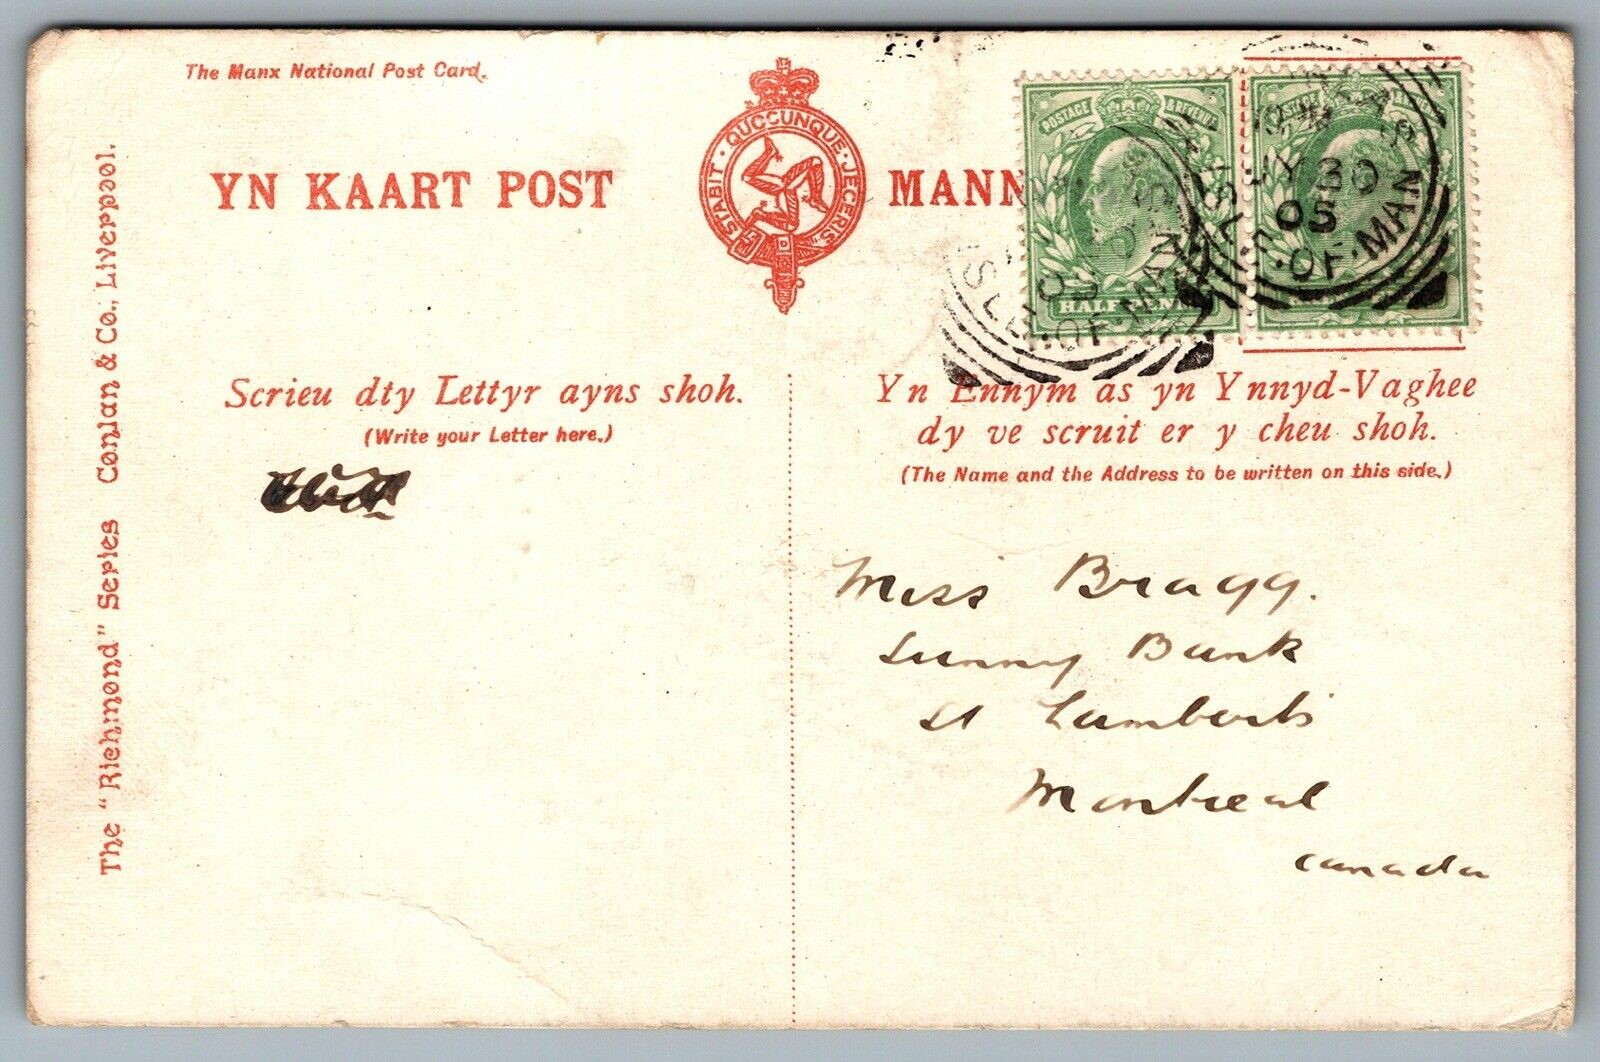 The Manx National Post Card.
YN KAART POST
STABIT · QUOCUNQUE · JECERIS
MANN
POSTAGE & REVENUE
HALF PENNY
ISLE · OF · MAN
POSTAGE & REVENUE
JY 30
05
ISLE · OF · MAN
The "Richmond" Series Conlan & Co., Liverpool.
Scrieu dty Lettyr ayns shoh.
(Write your Letter here.)
Yn Ennym as yn Ynnyd-Vaghee
dy ve scruit er y cheu shoh.
(The Name and the Address to be written on this side.)
Miss Bragg.
Sunny Bank
St Lamberts
Montreal
Canada